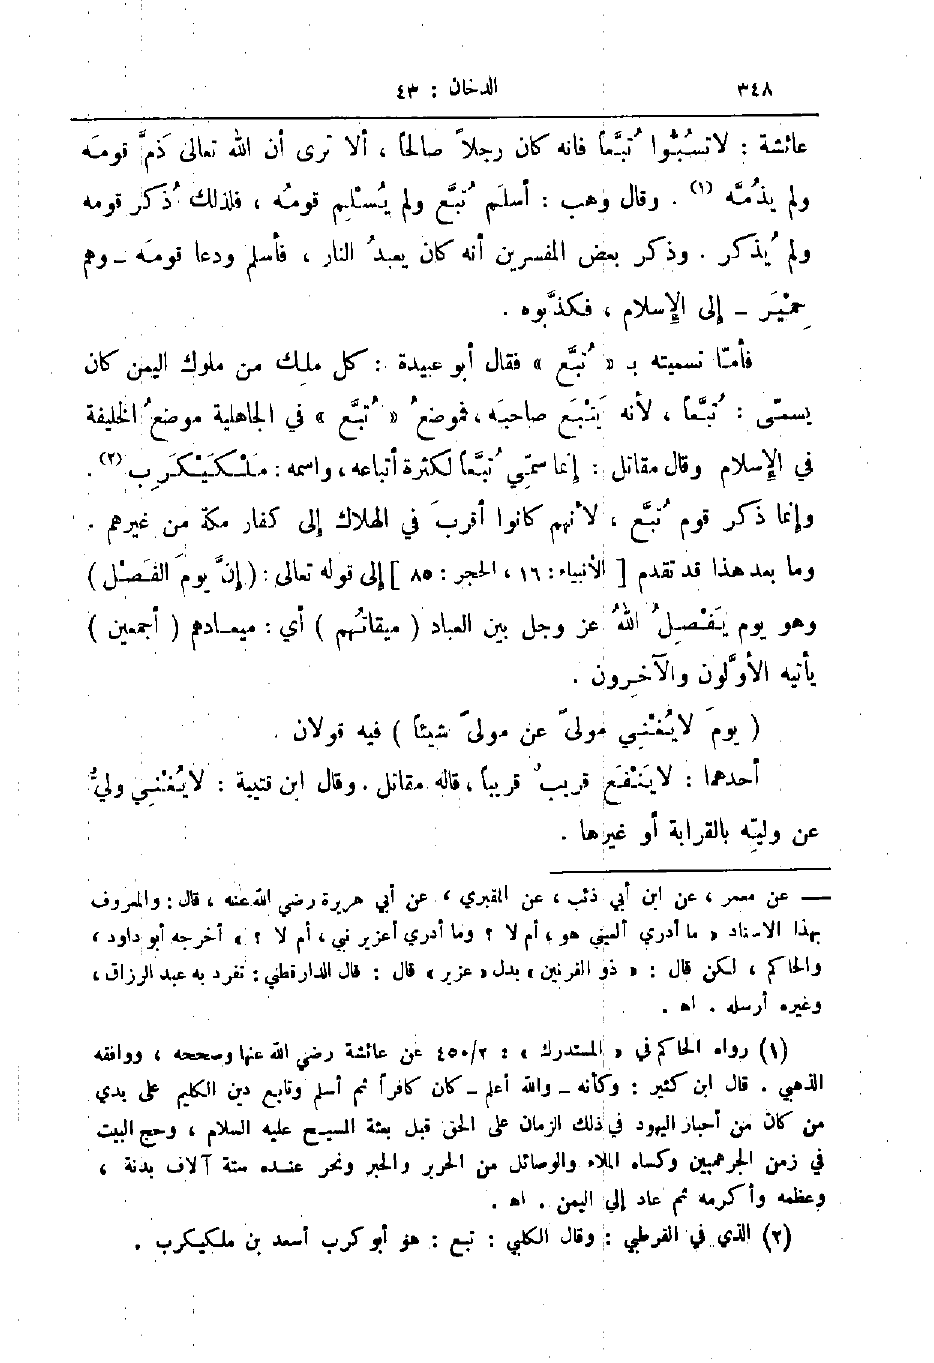 ٣٤٨ الدخان : ٤٣
عائشة : لاتسُبُّوا تُبَّعاً فانه كان رجلاً صالحاً ، ألا ترى أن الله تعالى ذمَّ قومَه
ولم يذُمَّه (١) . وقال وهب : أسلَم تُبَّع ولم يُسْلِم قومُه ، فلذلك ذُكر قومه
ولم يُذكر . وذكر بعض المفسرين أنه كان يعبدُ النار ، فأسلم ودعا قومَه ــ وهم
حِمْيَر ــ إلى الإسلام ، فكذَّبوه .
فأمّا تسميته بـ « تُبَّع » فقال أبو عبيدة : كل ملِك من ملوك اليمن كان
يسمّى : تُبَّعاً ، لأنه يَتْبَع صاحبَه ، فموضعُ « تُبَّع » في الجاهلية موضعُ الخليفة
في الإسلام وقال مقاتل : إنما سمّي تُبَّعاً لكثرة أتباعه ، واسمه : مَلْكَيْكَرِب (٢) .
وإنما ذكر قوم تُبَّع ، لأنهم كانوا أقربَ في الهلاك إلى كفار مكة من غيرهم .
وما بعد هذا قد تقدم [ الأنبياء : ١٦ ، الحجر : ٨٥ ] إلى قوله تعالى : ( إنَّ يومَ الفَصْل )
وهو يوم يَفْصِلُ اللهُ عز وجل بين العباد ( ميقاتُهم ) أي : ميعادهم ( أجمعين )
يأتيه الأوَّلون والآخِرون .
( يومَ لايُغْنِي مولىً عن مولىً شيئاً ) فيه قولان .
أحدهما : لايَنْفَع قريبٌ قريباً ، قاله مقاتل . وقال ابن قتيبة : لايُغْني وليٌّ
عن وليّه بالقرابة أو غيرها .
ــ عن معمر ، عن ابن أبي ذئب ، عن المقبري ، عن أبي هريرة رضي الله عنه ، قال : والمعروف
بهذا الاسناد « ما أدري ألعيني هو ، أم لا ؟ وما أدري أعزير نبي ، أم لا ؟ » أخرجه أبو داود ،
والحاكم ، لكن قال : « ذو القرنين » بدل « عزير » قال : قال الدارقطني : تفرد به عبد الرزاق ،
وغيره أرسله . اه .
(١) رواه الحاكم في « المستدرك » : ٤٥٠/٢ عن عائشة رضي الله عنها وصححه ، ووافقه
الذهبي . قال ابن كثير : وكأنه ــ والله أعلم ــ كان كافراً ثم أسلم وتابع دين الكليم على يدي
من كان من أحبار اليهود في ذلك الزمان على الحق قبل بعثة المسيح عليه السلام ، وحج البيت
في زمن الجرهميين وكساه الملاء والوصائل من الحرير والحبر ونحر عنده ستة آلاف بدنة ،
وعظمه وأكرمه ثم عاد إلى اليمن . اه .
(٢) الذي في القرطبي : وقال الكلبي : تبع : هو أبو كرب أسعد بن ملكيكرب .